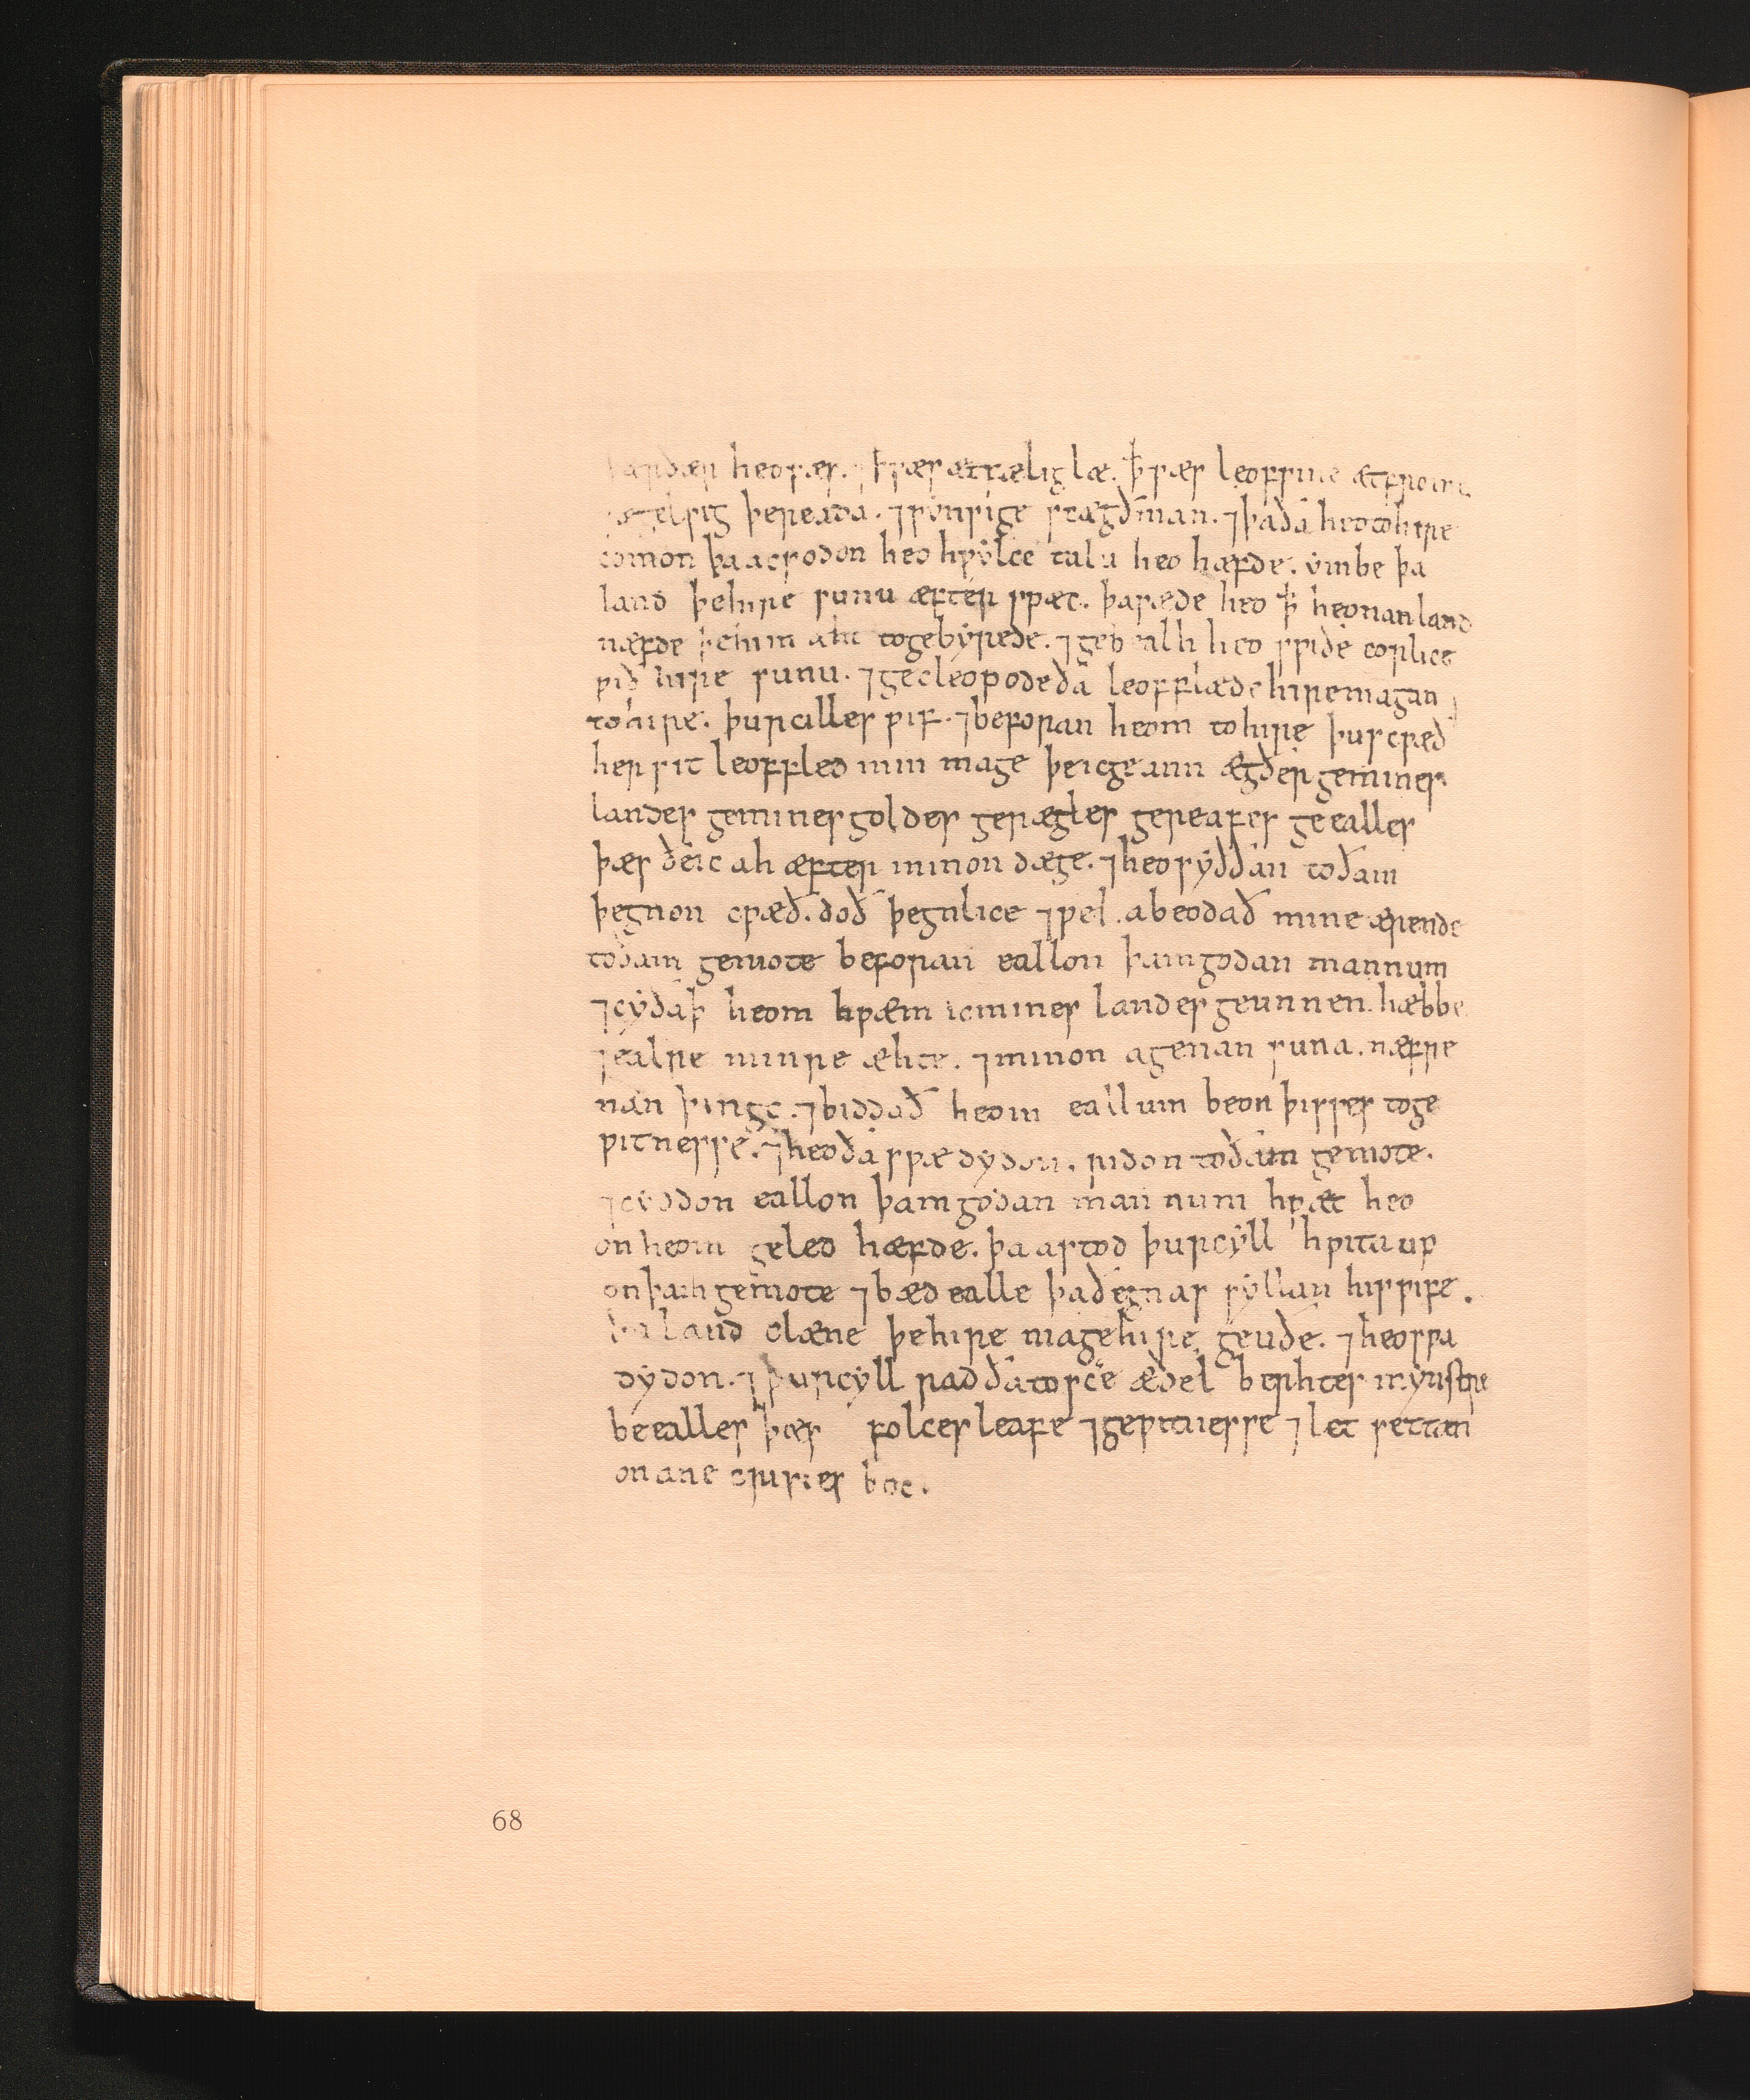 þærðær heo wæs. ⁊ ꝥ wæs æt fæliglæ. ꝥ wæs leofwine æt frome
⁊ ægelsig þe reada. ⁊ winsige scægðman. ⁊ þa ða heo to hire
comon þa acsodon heo hwylce talu heo hæfde. ymbe þa
land þe hire sunu æfter spæc. þa sæde heo ꝥ heo nan land
næfde þe him aht to gebyrede. ⁊ gebealh heo swiðe eorlice
wið hire sunu. ⁊ gecleopode ða leofflæde hire magan
to hire. þurcilles wif. ⁊ beforan heom to hire þus cwæð
her sit leoffled min mage þe ic geann ægðer ge mines
landes ge mines goldes ge rægles ge reafes ge ealles
þæs ðe ic ah æfter minon dæge. ⁊ heo syððan to ðam
þegnon cwæð. doð þegnlice ⁊ wel. abeodað mine ærende
to ðam gemote beforan eallon þam godan mannum
⁊ cyðaþ heom hwæm ic mines landes geunnen hæbbe
⁊ ealre minre æhte. ⁊ minon agenan suna. næfre
nan þingc. ⁊ biddað heom eallum beon þisses to ge
witnesse. ⁊ heo ða swæ dydon. ridon to ðam gemote.
⁊ cyðdon eallon þam godan mannum hwæt heo
on heom geled hæfde. þa astod þurcyll hwita up
on þam gemote ⁊ bæd ealle þa ðegnas syllan his wife.
þa land clæne þe hire mage hire geuðe. ⁊ heo swa
dydon. ⁊ þurcyll rad ða to sc̄e æðelberhtes mynstre
be ealles þæs folces leafe ⁊ gewitnesse ⁊ let settan
on ane cristes boc.
68